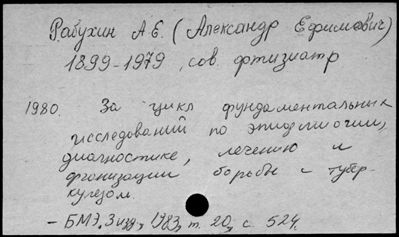 Рабухин А.Е. (Александр Ефимович)
1899-1979, сов. фтизиатр
1980. За цикл фундаментальных
исследований по эпидемиологии,
диагностике, лечению и
организации борьбы с тубер-
кулезом.
- БМЭ. 3 изд., 1983, т. 20, с. 524.